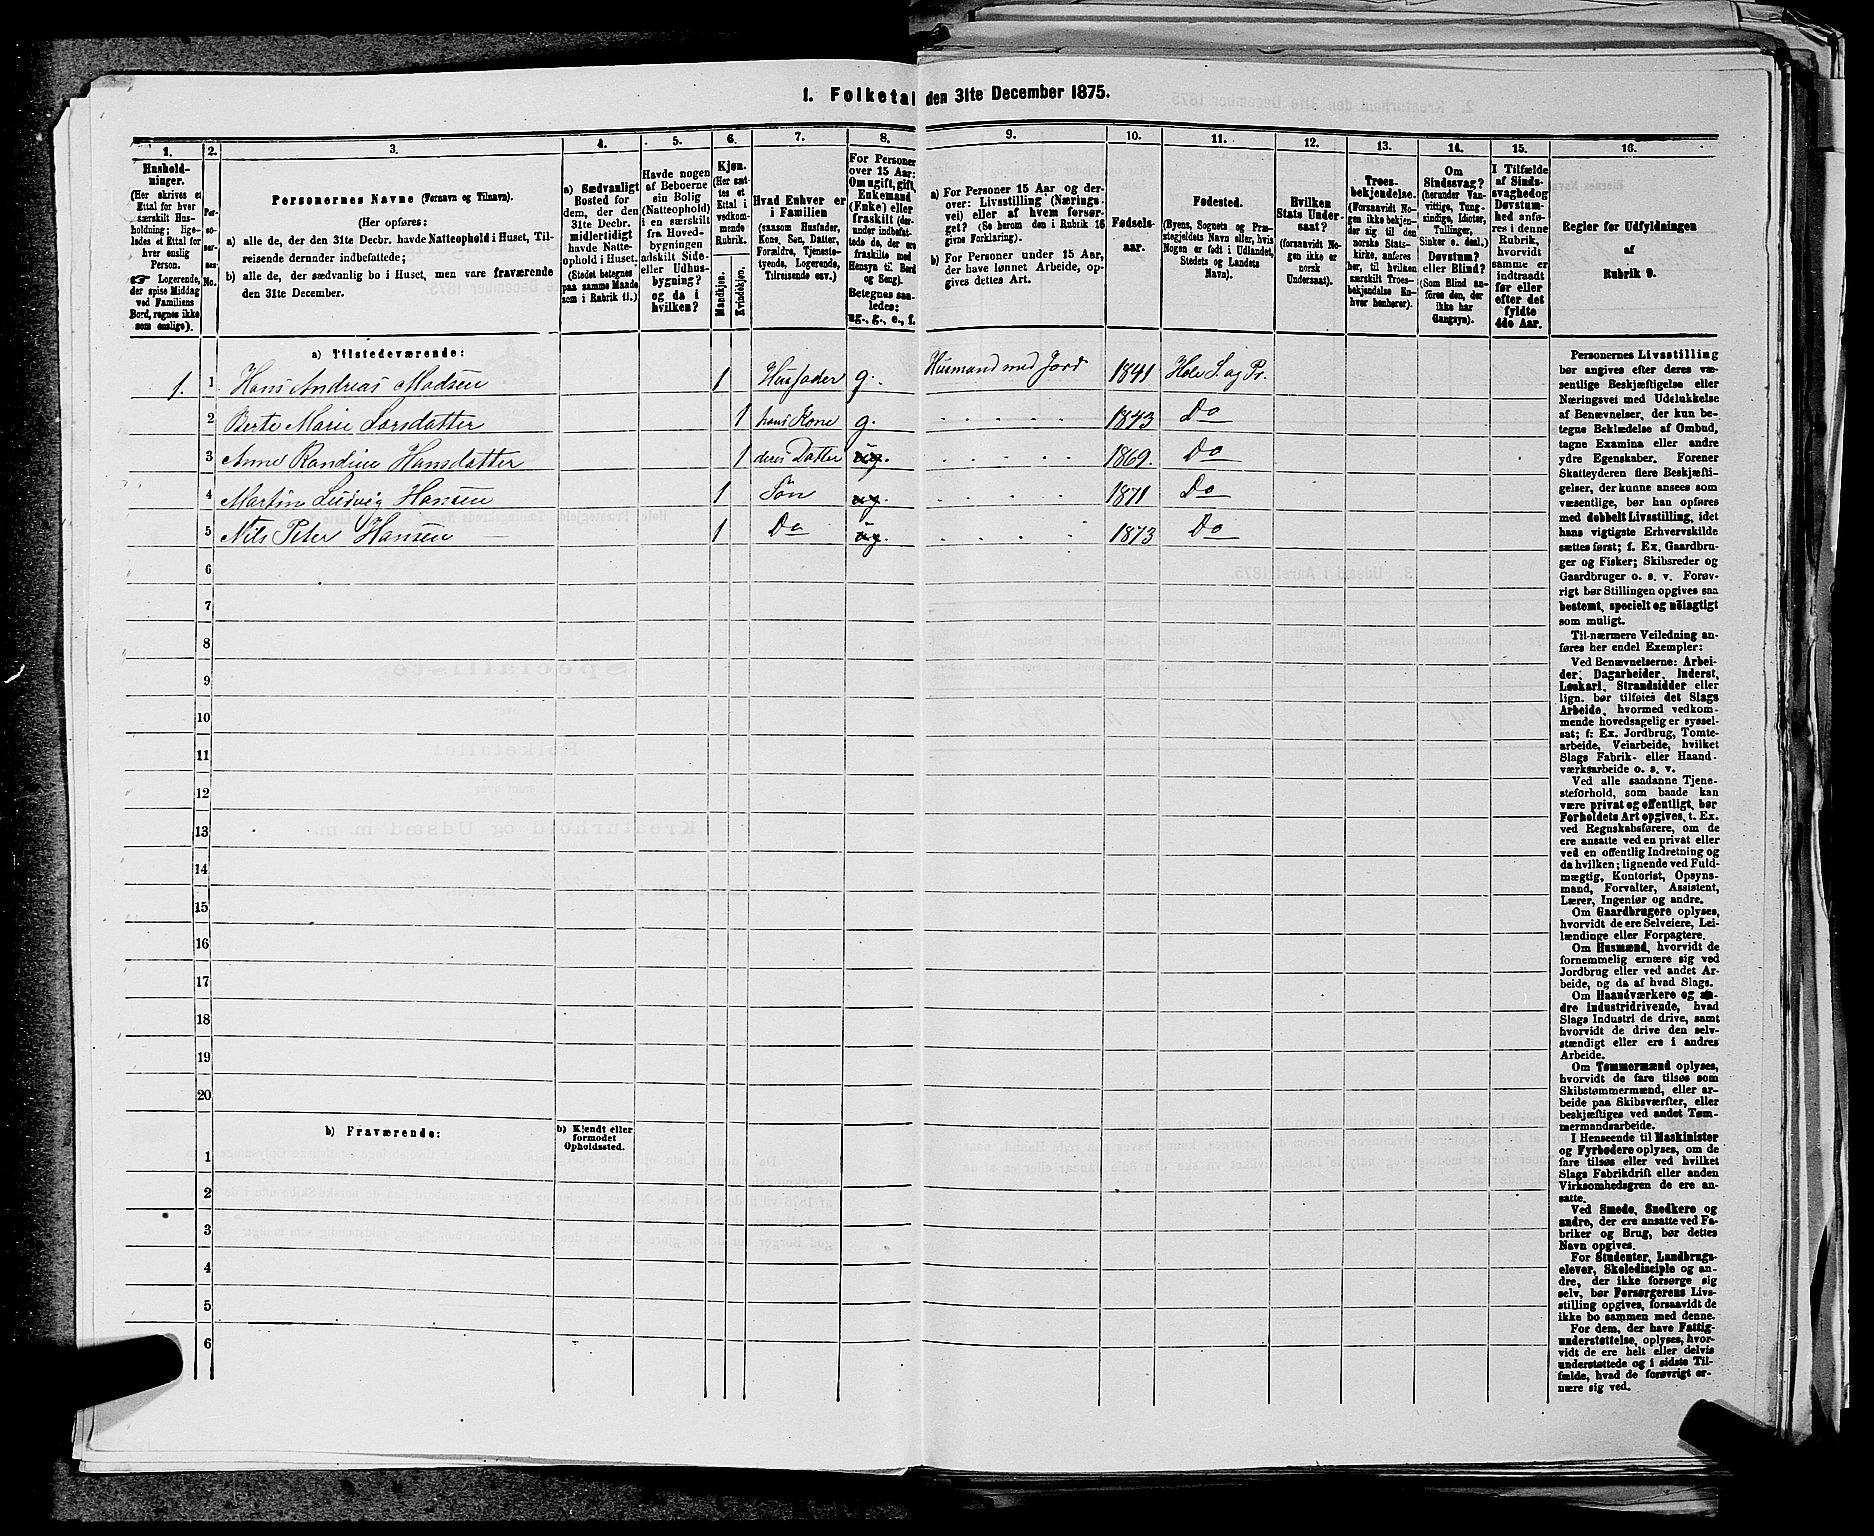 1. Folketal den 31te December 1875.
1. 2. 3. 4. 5. 6. 7. 8. 9. 10. 11. 12. 13. 14. 15. 16.
Hushold-
ninger.
(Her skrives et
Ettal for hver
særskilt Hus-
holdning; lige-
ledes et Ettal for
hver enslig
Person.
☞ Logerende,
der spise Middag
ved Familiens
Bord, regnes ikke
som enslige).
Per-
so-
ner-
nes
No.
Personernes Navne (Fornavn og Tilnavn).
(Her opføres:
a) alle de, der den 31te Decbr. havde Natteophold i Huset, Til-
reisende derunder indbefattede;
b) alle de, der sædvanlig bo i Huset, men vare fraværende
den 31te December.
a) Sædvanligt
Bosted for
dem, der den
31te Decbr.
midlertidigt
havde Natte-
ophold i Huset.
(Stedet betegnes
paa samme Maade
som i Rubrik 11.)
Havde nogen
af Beboerne
sin Bolig
(Natteophold)
i en særskilt
fra Hoved-
bygningen
adskilt Side-
eller Udhus-
bygning?
og da i
hvilken?
Kjøn.
(Her sæt-
tes et
Ettal i
vedkom-
mende
Rubrik.
Mandkjøn.
Kvindekjøn.
Hvad Enhver er
i Familien
(saasom Husfader,
Kone, Søn, Datter,
Forældre, Tjeneste-
tyende, Logerende,
Tilreisende osv.)
For Personer
over 15 Aar:
Om ugift, gift,
Enkemand
(Enke) eller
fraskilt (der-
under indbefat-
tede de, der ere
fraskilte med
Hensyn til Bord
og Seng).
Betegnes saa-
ledes:
ug., g., e., f.
a) For Personer 15 Aar og der-
over: Livsstilling (Nærings-
vei) eller af hvem forsør-
get? (Se herom den i Rubrik 16
givne Forklaring).
b) For Personer under 15 Aar,
der have lønnet Arbeide, op-
gives dettes Art.
Fødsels-
aar.
Fødested.
(Byens, Sognets og Præ-
stegjeldets Navn eller, hvis
Nogen er født i Udlandet,
Stedets og Landets
Navn).
Hvilken
Stats Under-
saat?
(forsaavidt No-
gen ikke er
norsk
Undersaat).
Troes-
bekjendelse.
(Forsaavidt No-
gen ikke bekjen-
der sig til den
norske Stats-
kirke, anføres
her, til hvilken
særskilt Troes-
bekjendelse En-
hver henhører).
Om
Sindssvag?
(herunder Van-
vittige, Tung-
sindige, Idioter,
Tullinger,
Sinker o. desl.)
Døvstum?
eller Blind?
(Som Blind an-
føres den, der
ikke har
Gangsyn).
I Tilfælde
af Sinds-
svaghed og
Døvstum-
hed anfø-
res i denne
Rubrik,
hvorvidt
samme er
indtraadt
før eller
efter det
fyldte
4de Aar.
Regler for Udfyldningen
af
Rubrik 9.
a) Tilstedeværende:
1. 1 Hans Andreas Madsen 1 Husfader g. Husmand med Jord 1841 Hole S. og Pr.
2 Berte Marie Larsdatter 1 hans Kone g. 1843 Do
3 Anne Randine Hansdatter 1 deres Datter ug. 1869. Do
4 Martin Ludvig Hansen 1 Søn ug. 1871 Do
5 Nils Peter Hansen 1 Do ug. 1873 Do
6
7
8
9
10
11
12
13
14
15
16
17
18
19
20
b) Fraværende:
b) Kjendt eller
formodet
Opholdssted.
1
2
3
4
5
6
Personernes Livsstilling
bør angives efter deres væ-
sentlige Beskjæftigelse eller
Næringsvei med Udelukkelse
af Benævnelser, der kun be-
tegne Beklædelse af Ombud,
tagne Examina eller andre
ydre Egenskaber. Forener
Skatteyderen flere Beskjæfti-
gelser, der kunne ansees som
væsentlige, bør han opføres
med dobbelt Livsstilling, idet
hans vigtigste Erhvervskilde
sættes først; f. Ex. Gaardbru-
ger og Fisker; Skibsreder og
Gaardbruger o. s. v. Forøv-
rigt bør Stillingen opgives saa
bestemt, specielt og nøiagtigt
som muligt.
Til nærmere Veiledning an-
føres her endel Exempler:
Ved Benævnelserne: Arbei-
der, Dagarbeider, Inderst,
Løskarl, Strandsidder eller
lign. bør tilføies det Slags
Arbeide, hvormed vedkom-
mende hovedsagelig er syssel-
sat; f. Ex. Jordbrug, Tomte-
arbeide, Veiarbeide, hvilket
Slags Fabrik- eller Haand-
værksarbeide o. s. v.
Ved alle saadanne Tjene-
steforhold, som baade kan
være privat og offentligt, bør
Forholdets Art opgives, t. Ex.
ved Regnskabsførere, om de
ere ansatte ved en privat eller
ved en offentlig Indretning og
da hvilken; lignende ved Fuld-
mægtig, Kontorist, Opsyns-
mand, Forvalter, Assistent,
Lærer, Ingeniør og andre.
Om Gaardbrugere oplyses,
hvorvidt de ere Selveiere, Lei-
lændinge eller Forpagtere.
Om Husmænd, hvorvidt de
fornemmelig ernære sig ved
Jordbrug eller ved andet Ar-
beide, og da af hvad Slags.
Om Haandværkere og an-
dre Industridrivende, hvad
Slags Industri de drive, samt
hvorvidt de drive den selv-
stændigt eller ere i andres
Arbeide.
Om Tømmermænd oplyses,
hvorvidt de fare tilsøs som
Skibstømmermænd, eller ar-
beide paa Skibsværfter, eller
beskjæftiges ved andet Tøm-
mermandsarbeide.
I Henseende til Maskinister
og Fyrbødere oplyses, om de
fare tilsøs eller ved hvilket
Slags Fabrikdrift eller anden
Virksomhedsgren de ere an-
satte.
Ved Smede, Snedkere og
andre, der ere ansatte ved Fa-
briker og Brug, bør dettes
Navn opgives.
For Studenter, Landbrugs-
elever, Skoledisciple og an-
dre, der ikke forsørge sig
selv, bør Forsørgerens Livs-
stilling opgives, forsaavidt de
ikke bo sammen med denne.
For dem, der have Fattig-
understøttelse, oplyses, hvor-
vidt de ere helt eller delvis
understøttede og i sidste Til-
fælde, hvad de forøvrigt er-
nære sig ved.